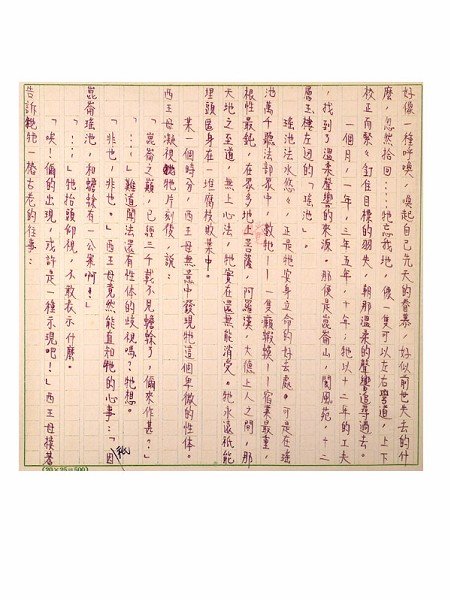 好像一種呼喚，喚起自己先天的眷慕，好似前世失去的什
麼，忽然拾回……牠忘我地，像一隻可以左右彎道，上下
校正而緊緊釘住目標的羽矢，朝那溫柔的聲響追尋過去。
一個月，一年，三年五年，十年；牠以十二年的工夫
，找到了溫柔聲響的來源。那便是崑崙山，閬風苑，十二
層玉樓左邊的「瑤池」。
瑤池法水悠悠，正是牠安身立命的好去處。可是在瑤
池萬千聽法部眾中，數牠——一隻癩蝦蟆——宿業最重，
根性最鈍，在眾多地上菩薩、阿羅漢，大德上人之間，那
天地之至道，無上心法，牠實在還無能消受。牠永遠祇能
埋頭匿身在一堆腐枝敗葉中。
某一個時分，西王母無意中發現牠這個卑微的性体。
西王母凝視牠片刻後，說：
「崑崙之巔，已經三千載不見蟾蜍了，儞來作甚？」
「……」難道聞法還有性体的歧視嗎？牠想。
「非也，非也。」西王母竟然能直知牠的心事：「因
崑崙瑤池，和蟾蜍有一公案啊！」
「……」牠抬頭仰視，不敢表示什麼。
「唉！儞的出現，或許是一種示現吧！」西王母接著
告訴牠一樁古老的往事：
(20×25=500)